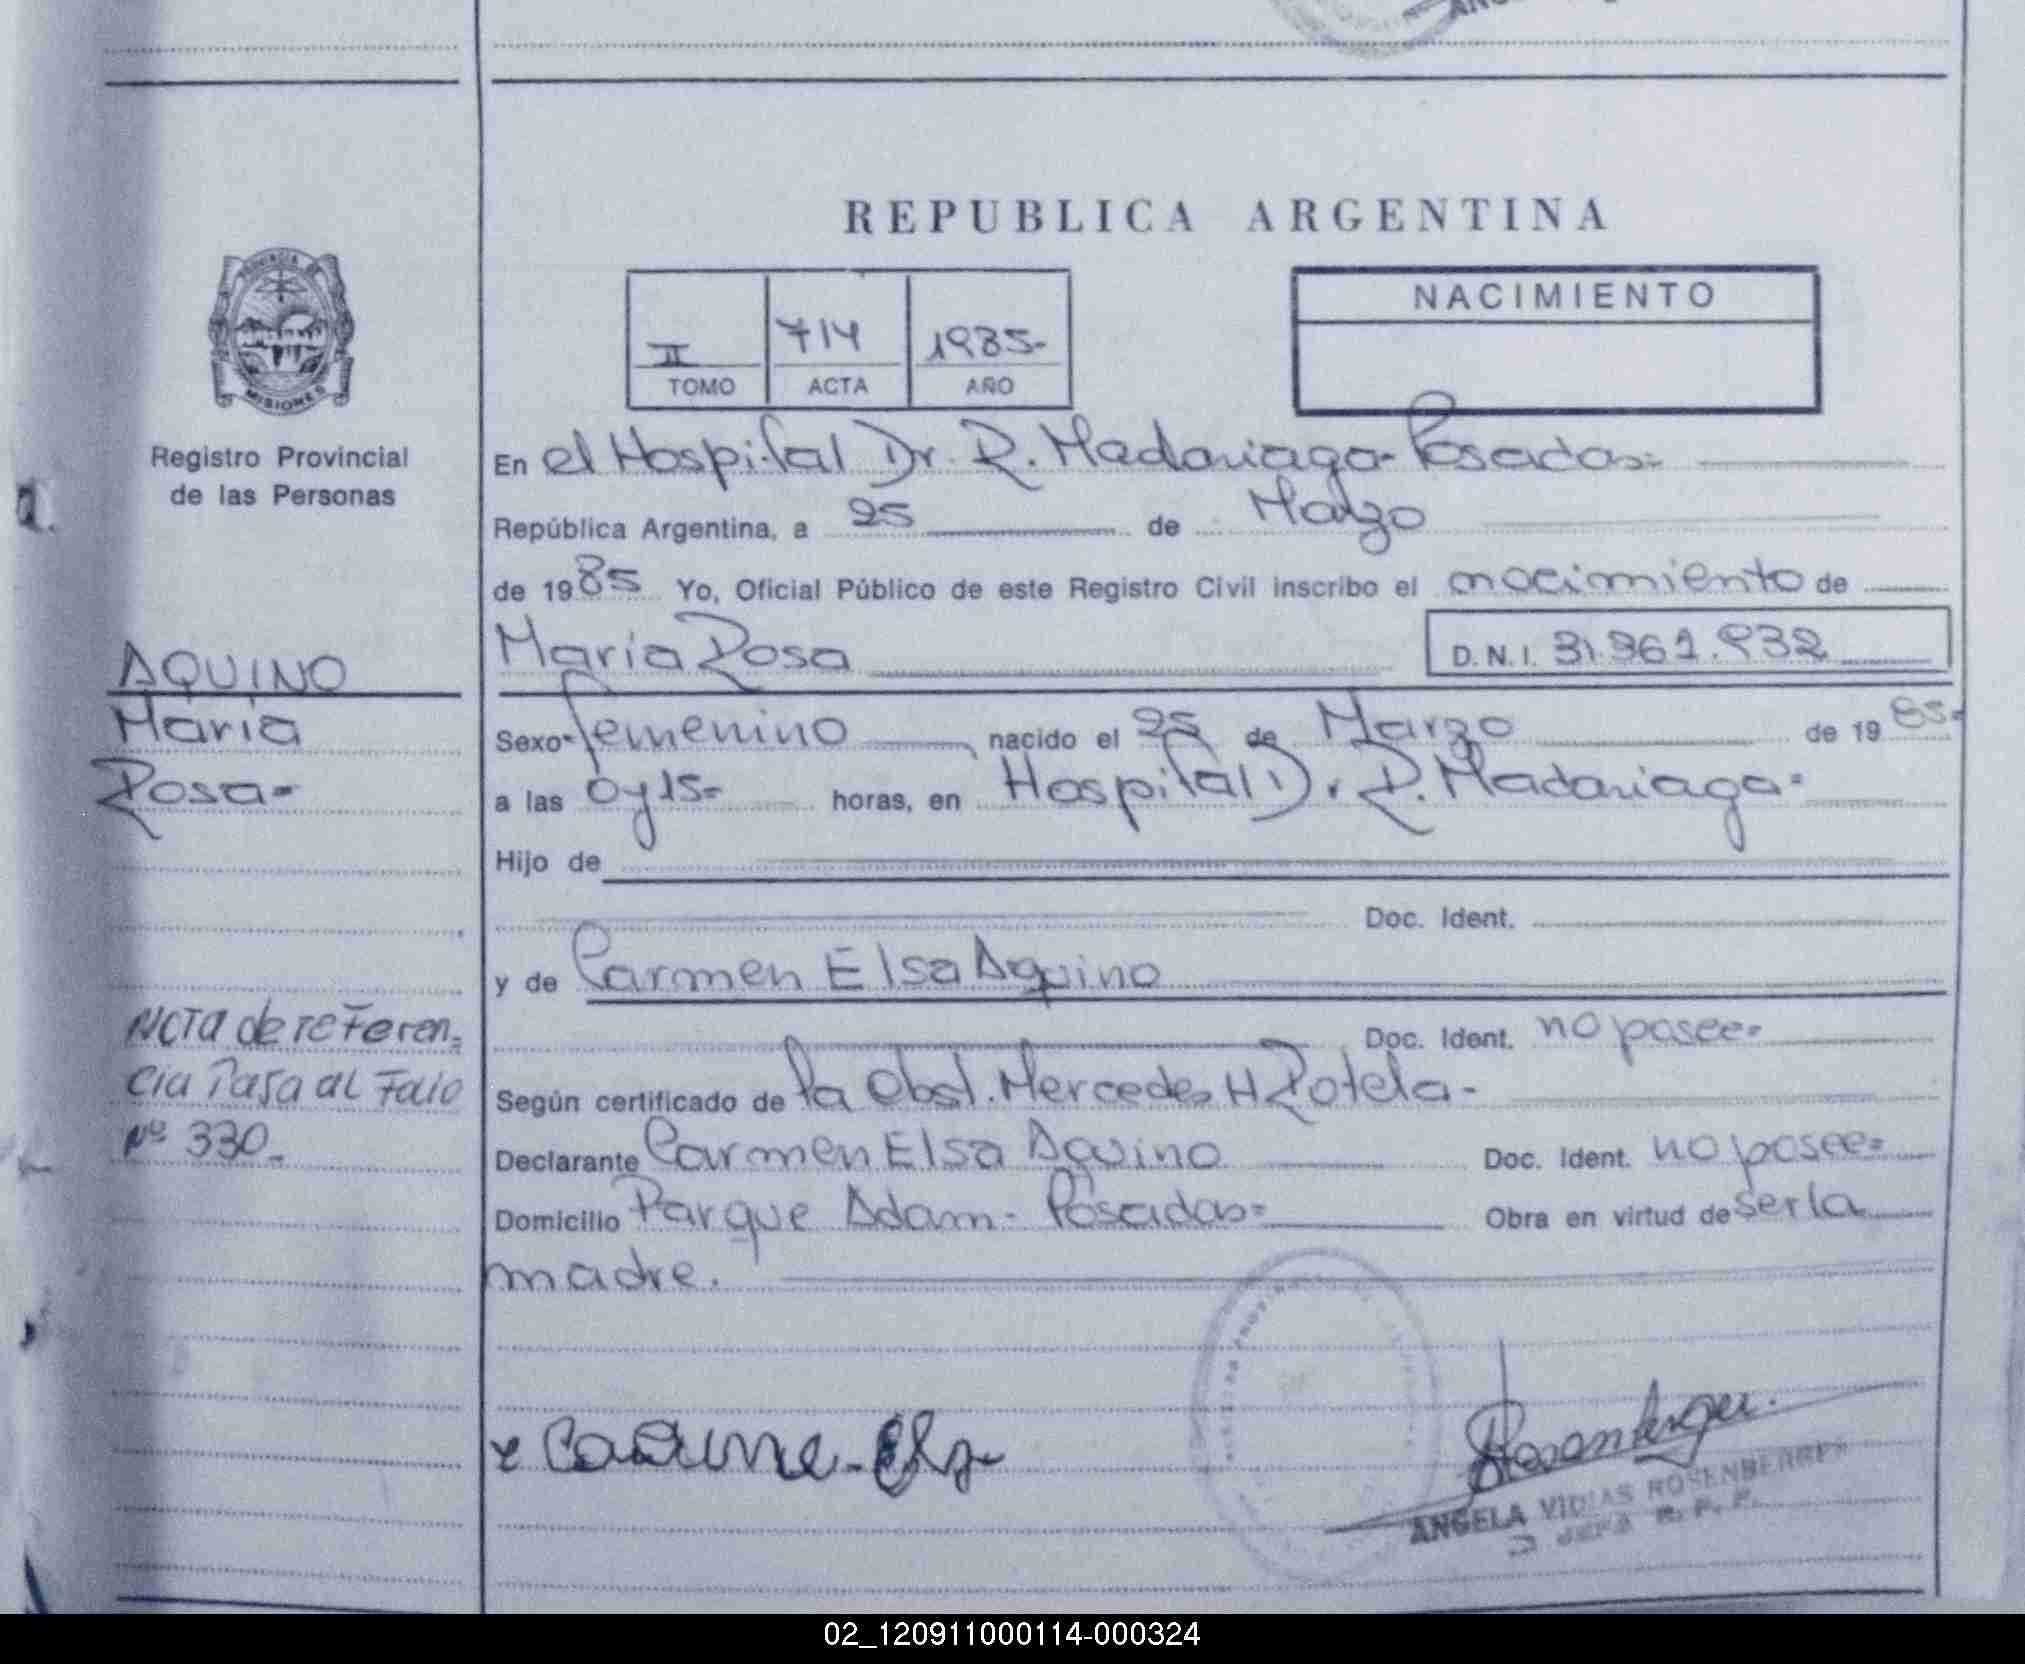 REPUBLICA ARGENTINA
PROVINCIA DE
MISIONES
Registro Provincial
de las Personas
II 714 1985-
TOMO ACTA AÑO
NACIMIENTO
En el Hospital Dr. R. Madariaga- Posadas=
República Argentina, a 25 de Marzo
de 1985 Yo, Oficial Público de este Registro Civil inscribo el nacimiento de
AQUINO
María
Rosa=
María Rosa D.N.I. 31.961.932
Sexo- femenino nacido el 25 de Marzo de 1985=
a las 0 y 15= horas, en Hospital Dr. R. Madariaga=
Hijo de
Doc. Ident.
y de Carmen Elsa Aquino
Doc. Ident. no posee=
NOTA de referen=
cia Pasa al Folio
Nº 330_
Según certificado de la Obst. Mercedes H Rotela-
Declarante Carmen Elsa Aquino Doc. Ident. no posee=
Domicilio Parque Adam- Posadas= Obra en virtud de ser la
madre.
ANGELA VIDIAS ROSENBERGER
JEFA R. P. P.
02_120911000114-000324